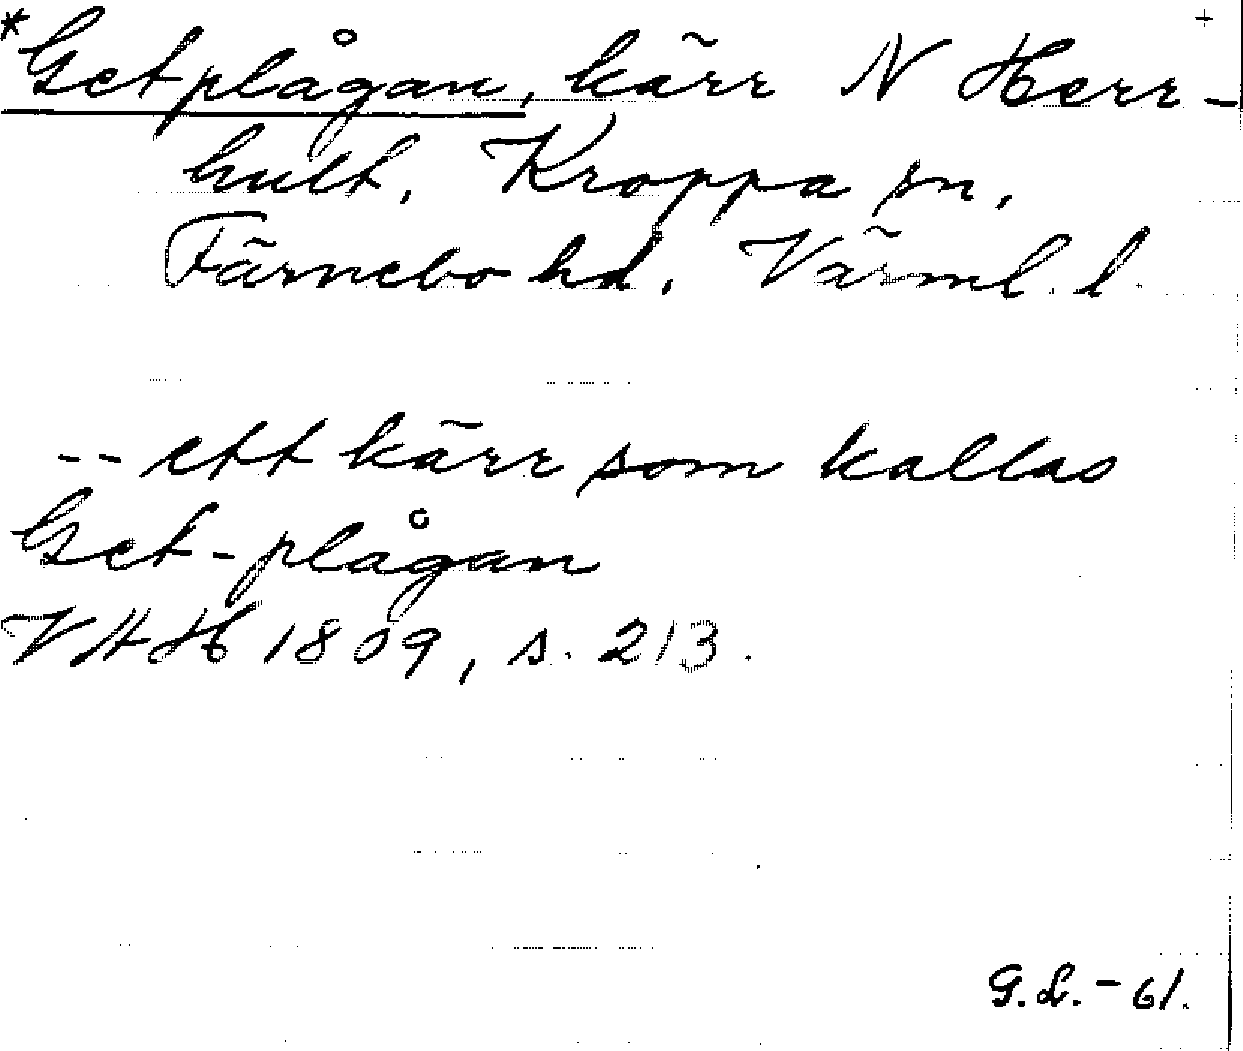 *Getplågan, kärr N Herr-
hult, Kroppa sn,
Färnebo hd, Värml. l.
-- ett kärr som kallas
Get-plågan
VHH 1809, s. 213.
G.L.-61.